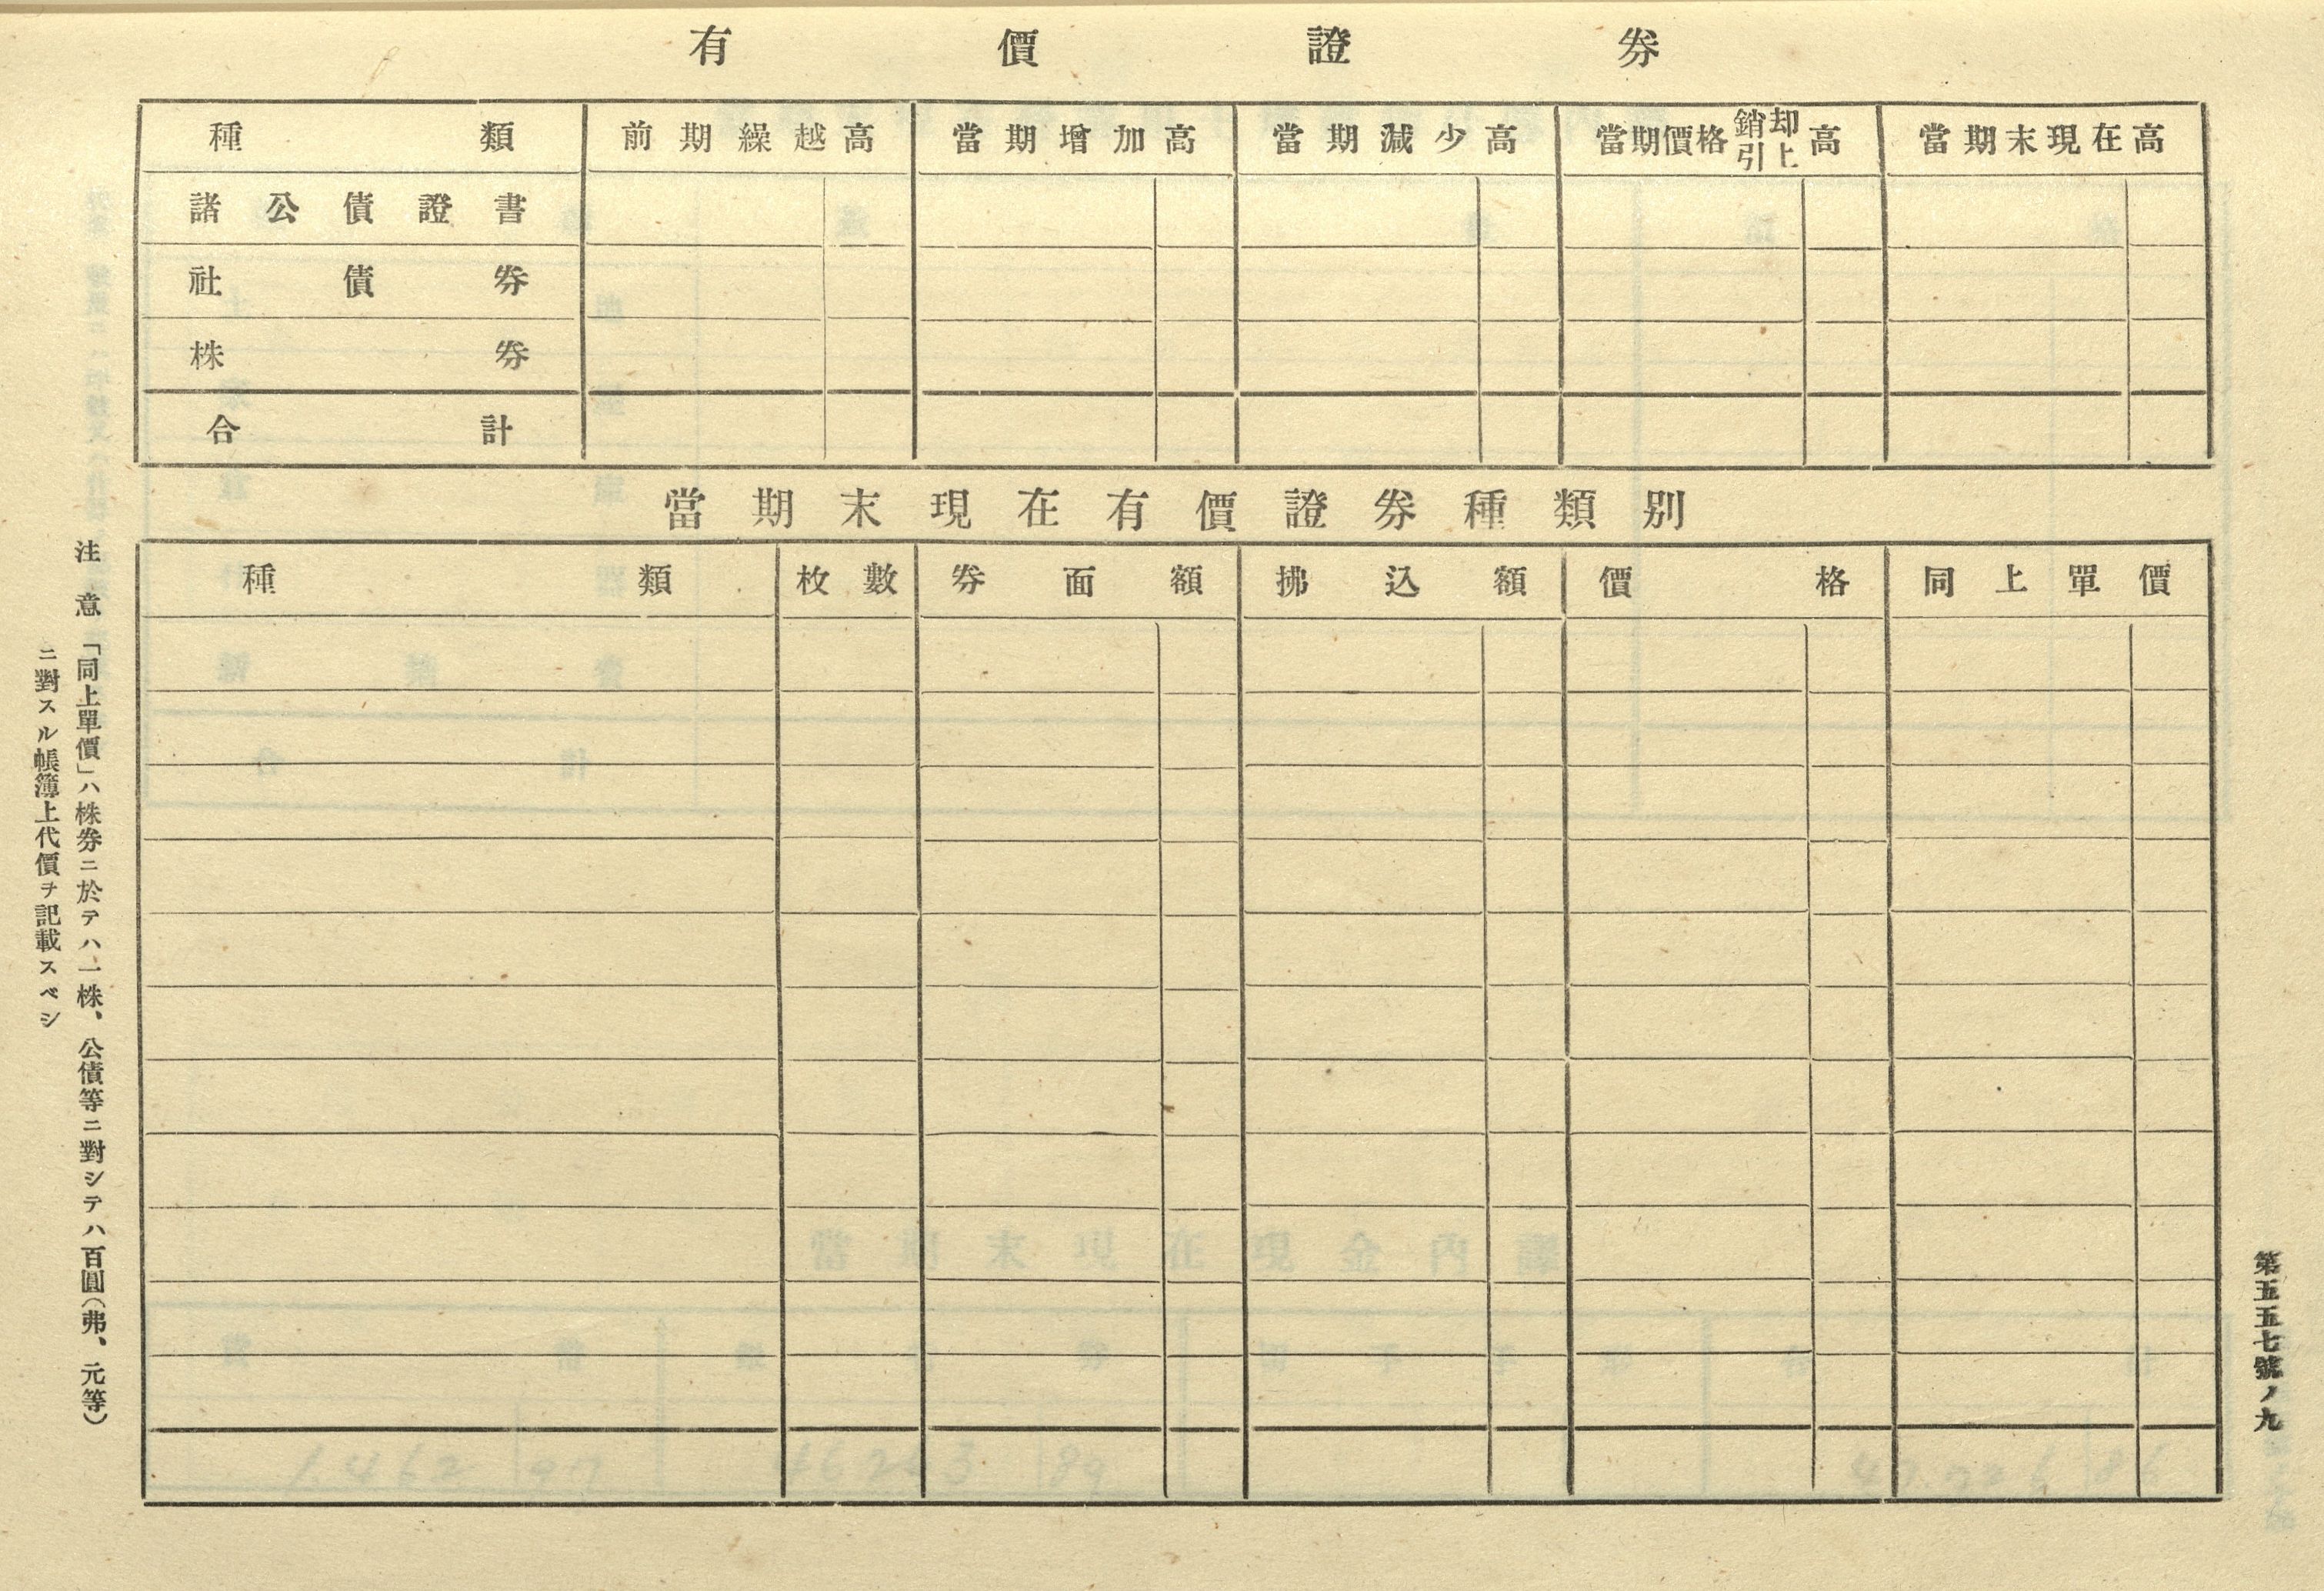 有價證券
種類 前期繰越高 當期增加高 當期減少高 當期價格銷却引上高 當期末現在高
諸公債證書
社債券
株券
合計
當期末現在有價證券種類別
種類 枚數 券面額 拂込額 價格 同上單價
注意「同上單價」ハ株券ニ於テハ一株、公債等ニ對シテハ百圓（弗、元等）
ニ對スル帳簿上代價ヲ記載スベシ
第五五七號ノ九
當期末現在現金內譯